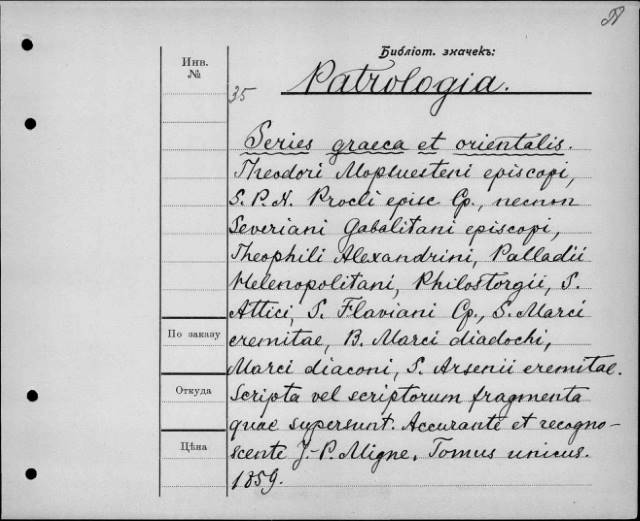 Библіот. значекъ:
Инв.
№
35 Patrologia.
Series graeca et orientalis.
Theodori Mopsuesteni episcopi,
S. P. N. Procli episc Cp., necnon
Severiani Gabalitani episcopi,
Theophili Alexandrini, Palladii
Helenopolitani, Philostorgii, S.
Attici, S. Flaviani Cp., S. Marci
eremitae, B. Marci diadochi,
Marci diaconi, S. Arsenii eremitae.
Scripta vel scriptorum fragmenta
quae supersunt. Accurante et recogno-
scente J.-P. Migne. Tomus unicus.
1859.
По заказу
Откуда
Цѣна